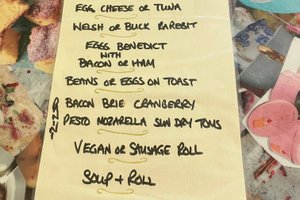 EGG, CHEESE OR TUNA
WELSH OR BUCK RAREBIT
EGGS BENEDICT
WITH
BACON OR HAM
BEANS OR EGGS ON TOAST
BACON BRIE CRANBERRY
PESTO MOZARELLA SUN DRY TOMS
VEGAN OR SAUSAGE ROLL
SOUP + ROLL